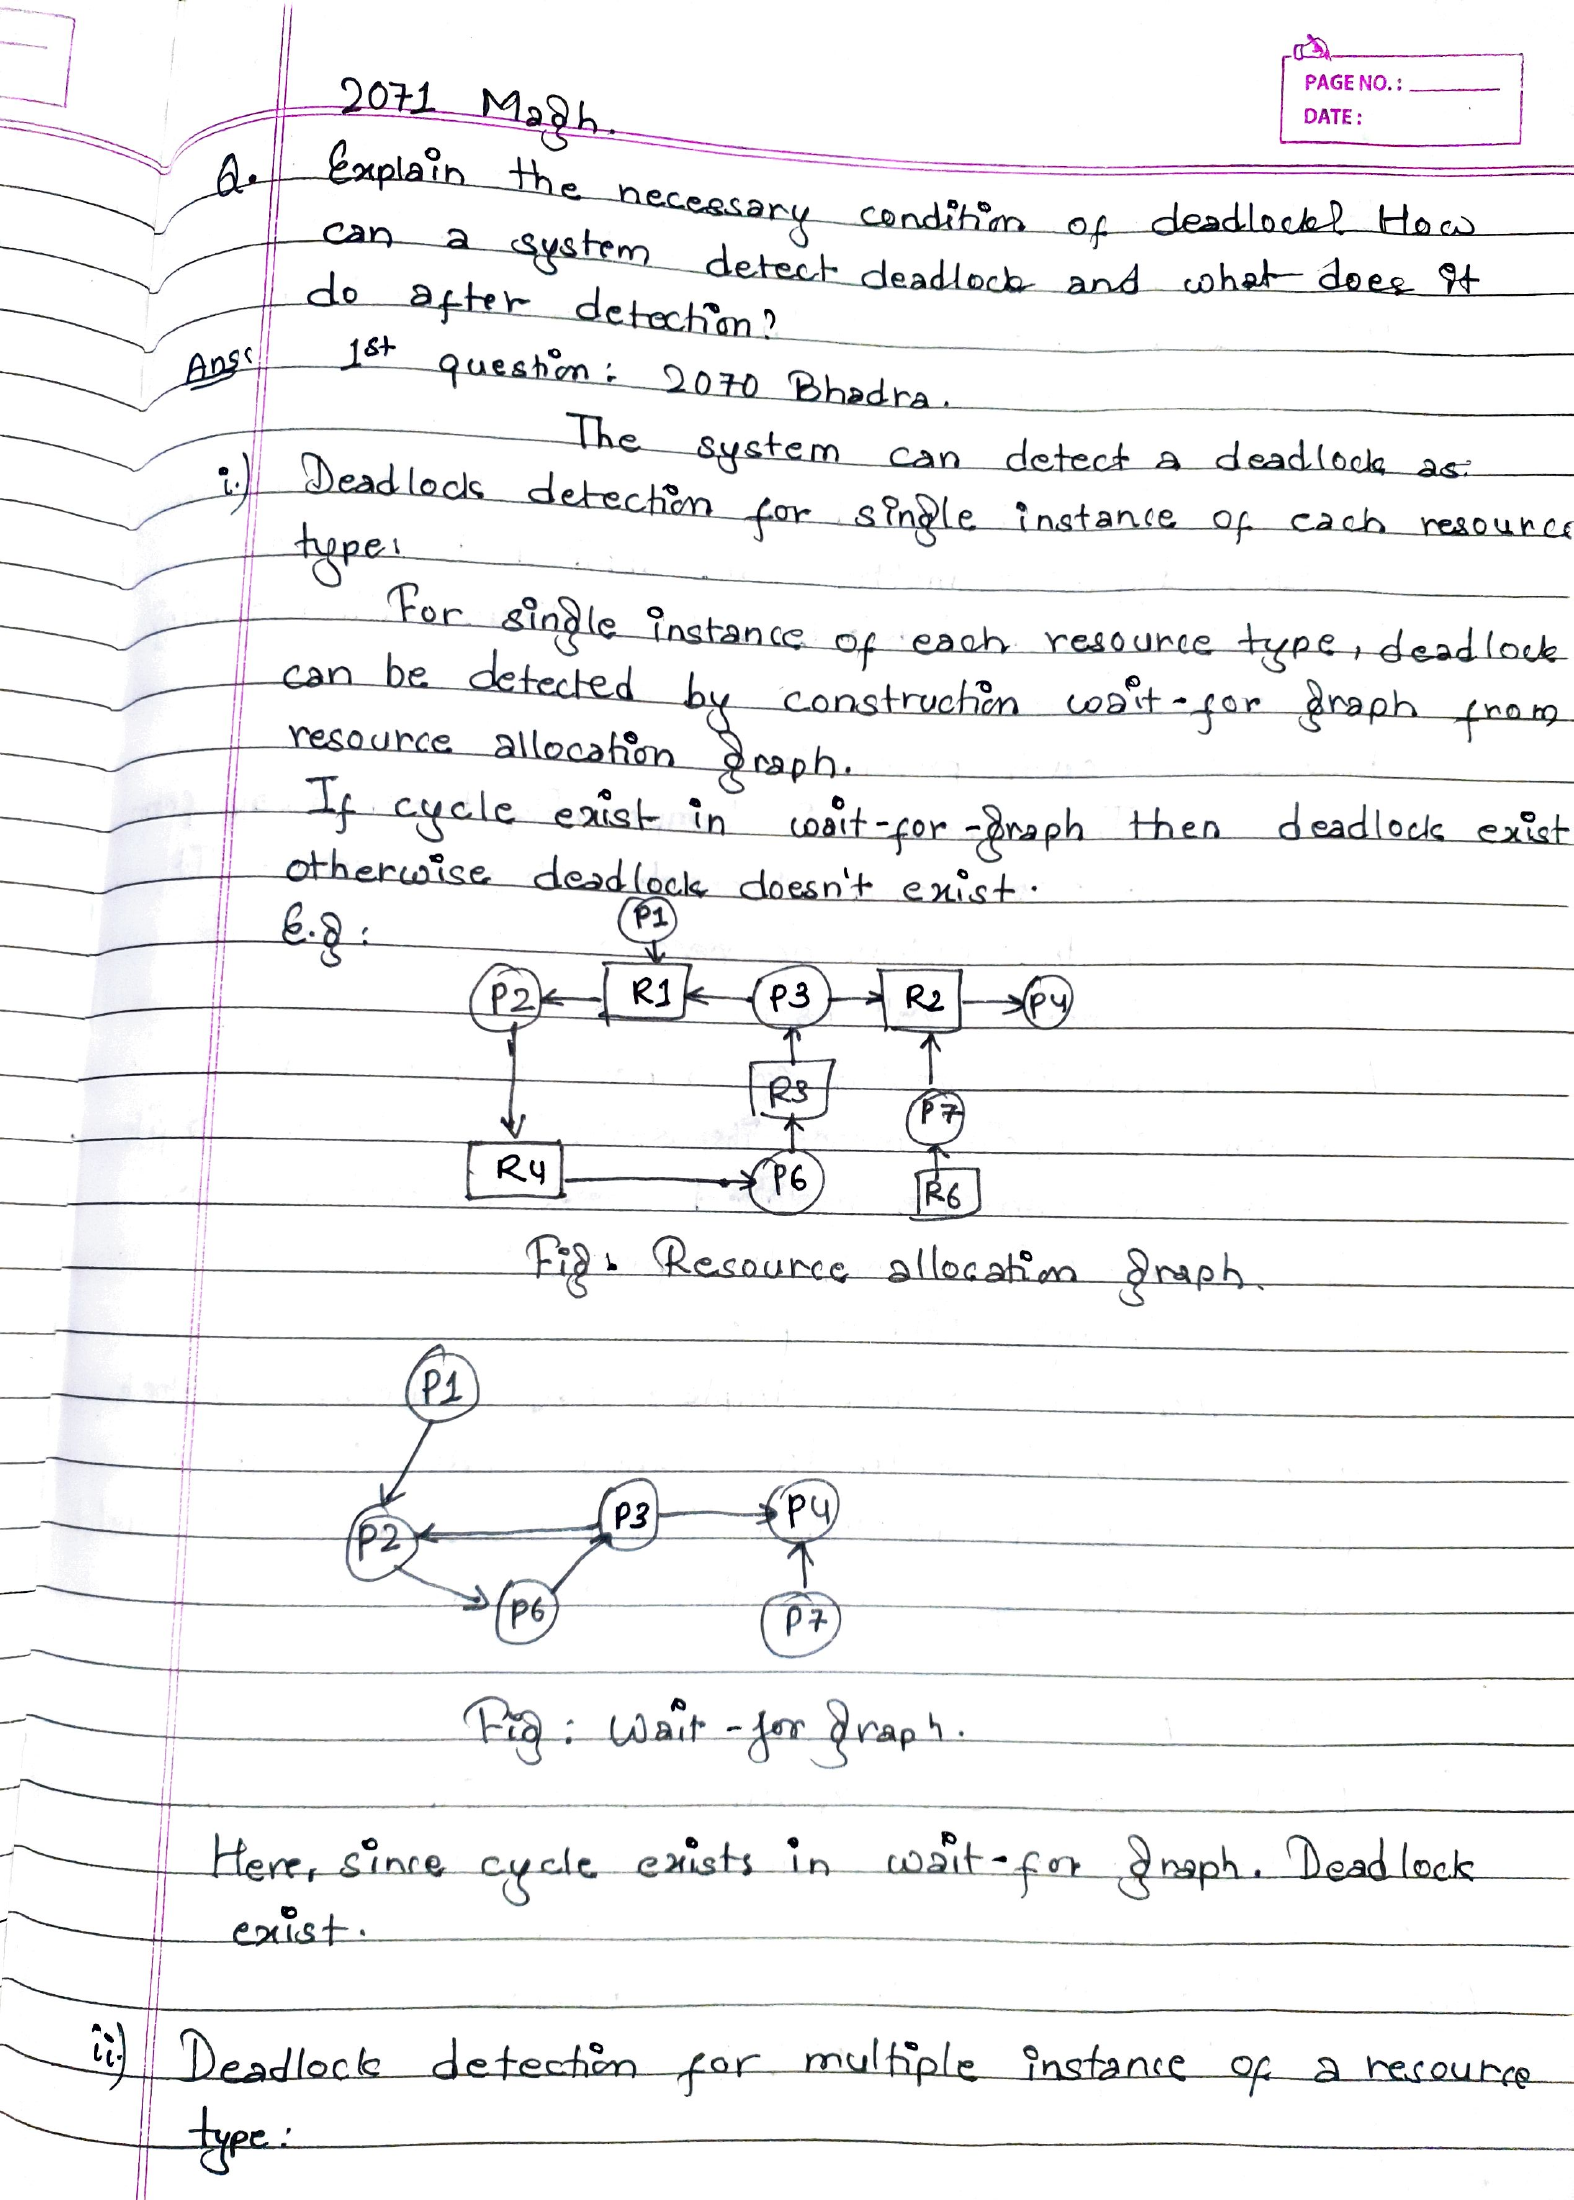 PAGE NO.:
DATE:
2071 Magh.
Q. Explain the necessary condition of deadlock? How
can a system detect deadlock and what does it
do after detection?
Ans: 1st question: 2070 Bhadra.
The system can detect a deadlock as:
i.) Deadlock detection for single instance of each resource
type:
For single instance of each resource type, deadlock
can be detected by construction wait-for graph from
resource allocation graph.
If cycle exist in wait-for-graph then deadlock exist
otherwise deadlock doesn't exist.
E.g:
P1
P2 R1 P3 R2 P4
R3
P7
R4 P6 R6
Fig. Resource allocation graph.
P1
P3 P4
P2
P6 P7
Fig: Wait-for graph.
Here, since cycle exists in wait-for graph. Deadlock
exist.
ii) Deadlock detection for multiple instance of a resource
type: